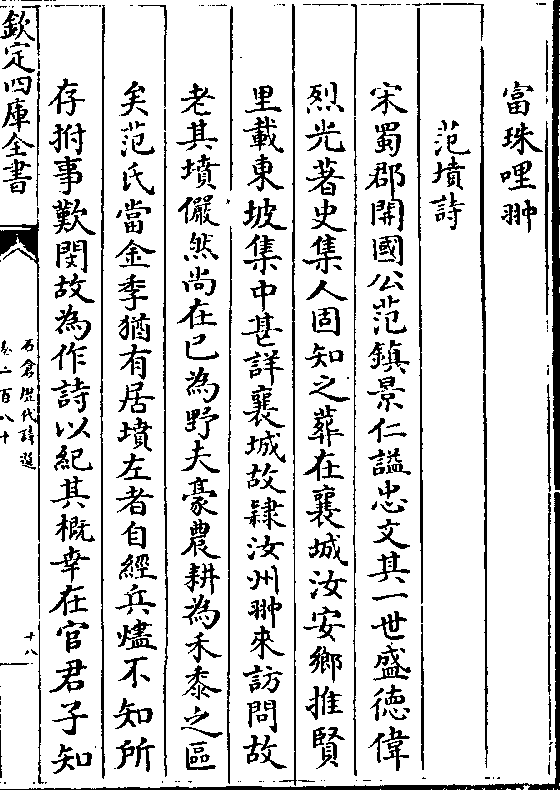 富珠哩翀
范墳詩
宋蜀郡開國公范鎮景仁諡忠文其一世盛德偉
烈光著史集人固知之葬在襄城汝安鄉推賢
里載東坡集中甚詳襄城故隸汝州翀來訪問故
老其墳儼然尚在已為野夫豪農耕為禾黍之區
矣范氏當金季猶有居墳左者自經兵燼不知所
存拊事歎閔故為作詩以紀其概幸在官君子知
欽定四庫全書
石倉歷代詩選
卷二百八十
十八